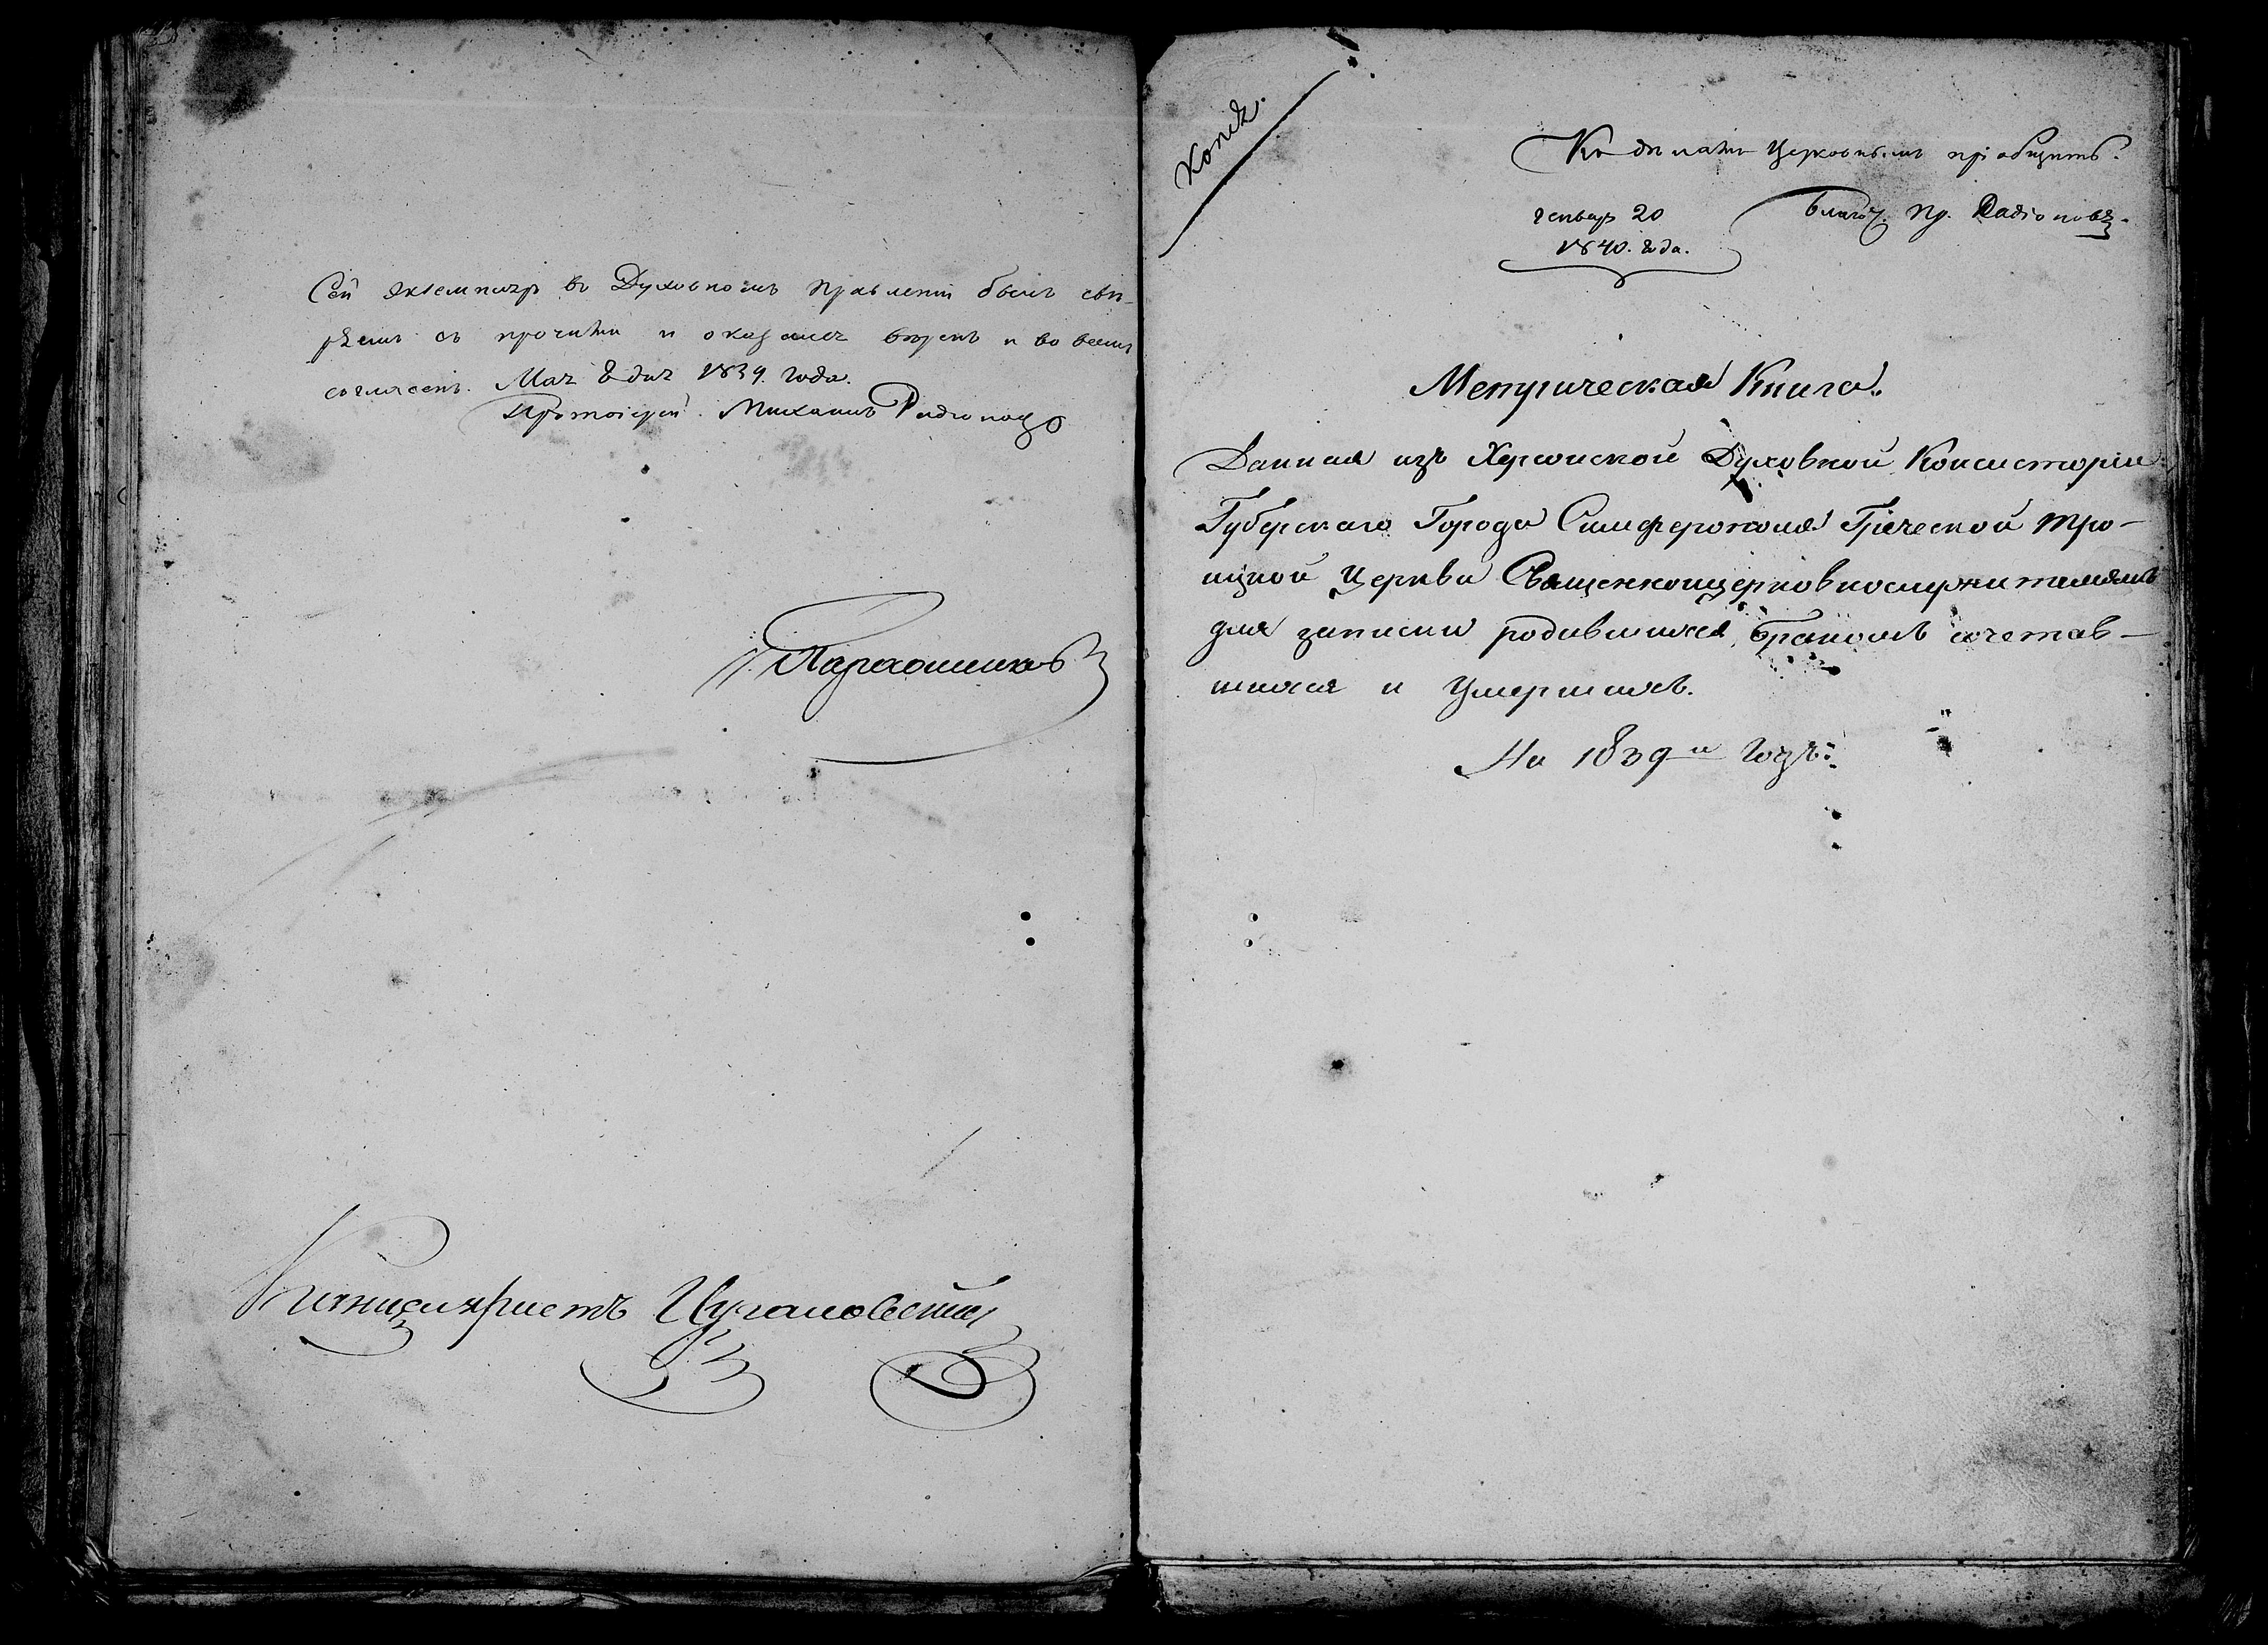 Сей экземпляръ въ Духовномъ Правленіи былъ свѣ-
ряемъ съ прочими и оказался вѣренъ и во всемъ
согласенъ. Мая 8 дня 1839. года.
Протоіерей Михаилъ Радіоновъ
Канцеляристъ
Копія.
Къ дѣламъ Церковнымъ пріобщить.
генваря 20
1840. года.
благоч. Пр. Радіоновъ.
Метрическая Книга.
Данная изъ Херсонской Духовной Консисторіи
Губерскаго Города Симферополя Греческой Тро-
ицкой Церкви Священноцерковнослужителямъ
для записки родившихся, бракомъ сочетав-
шихся и Умершихъ.
На 1839-й Годъ.